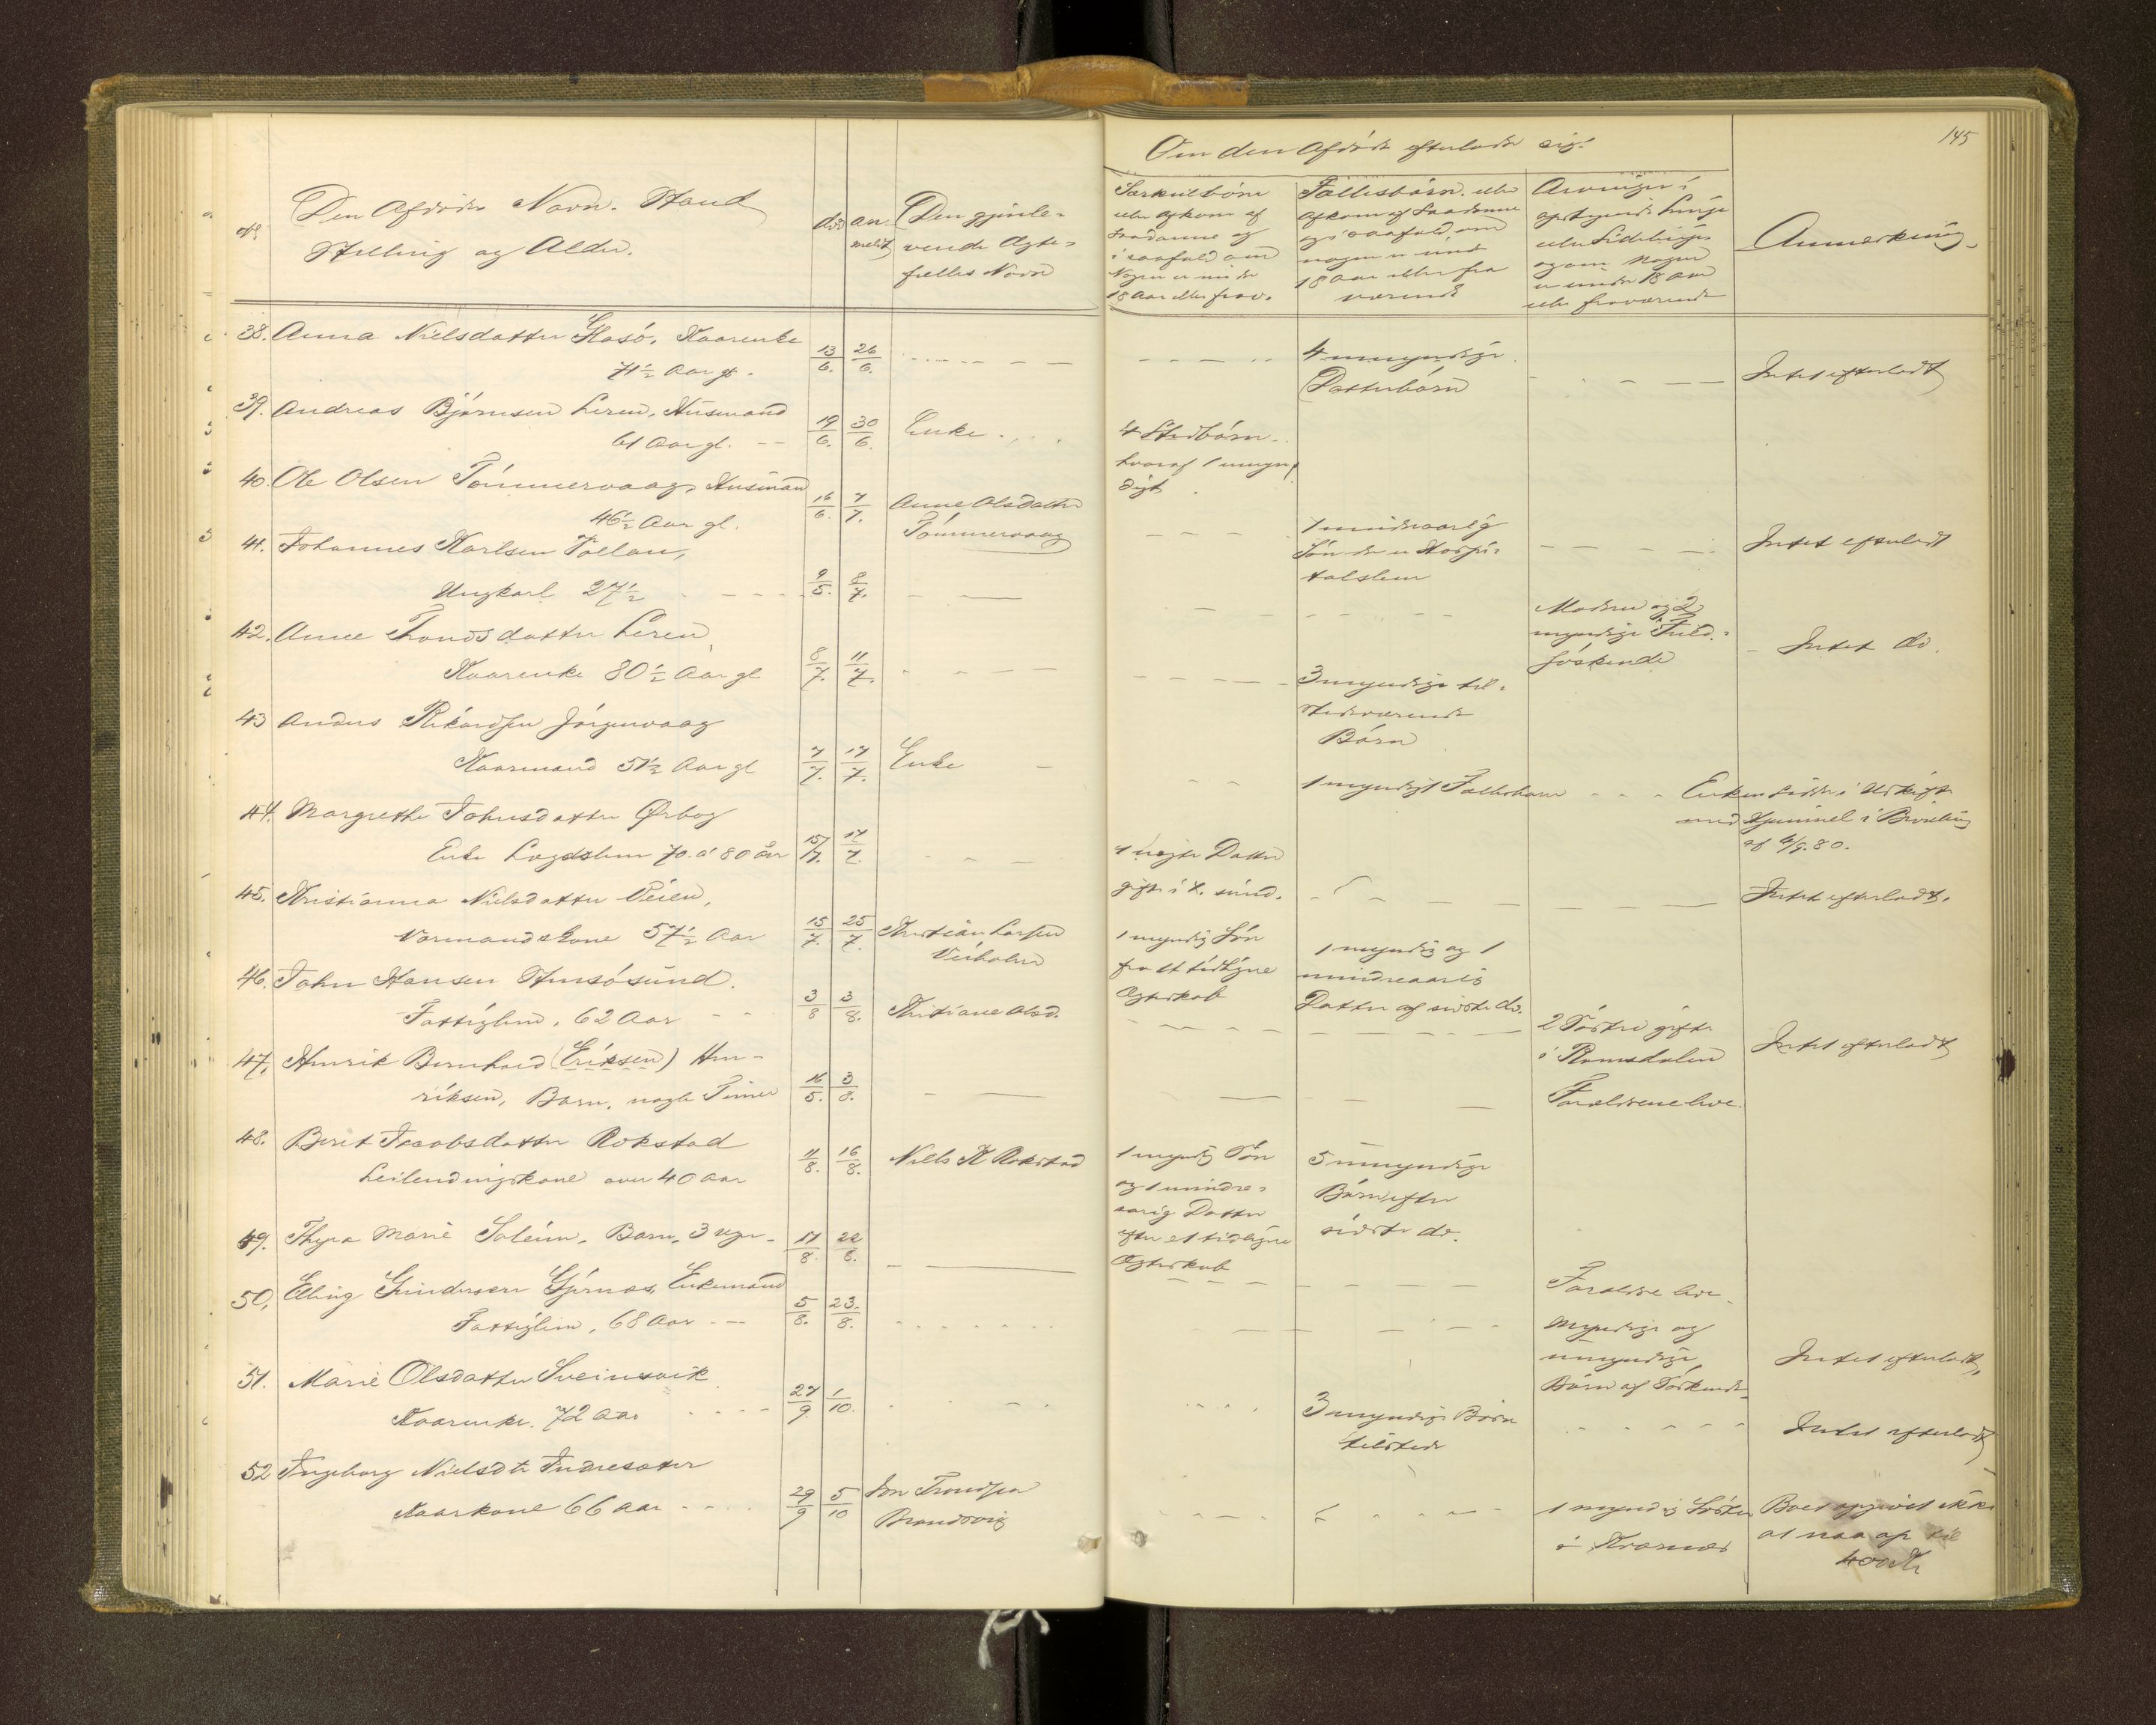 145
Om den Afdøde efterlader sig:
No
Den Afdødes Navn. Stand
Stilling og Alder.
død
an-
meldt
Den gjenle-
vende Ægte-
fælles Navn
Særkuldbørn
eller Afkom af
Saadanne og
i saafald om
Nogen er under
18 Aar eller frav.
Fællesbørn. eller
Afkom af Saadanne
og i saafald om
nogen er under
18 Aar eller fra
værende
Arvinger i
opstigende Linje
eller Sidelinje
og om Nogen
er under 18 Aar
eller fraværende
Anmærkning
38. Anna Nielsdatter Kaarenke
71½ Aar gl.
13/6. 26/6.
4 umyndige
Datterbørn
Intet efterladt
39. Andreas Bjørnsen Leren, Husmand
61 Aar gl.
19/6. 30/6.
Enke
4 Stedbørn
hvoraf 1 umyn-
digt
40. Ole Olsen Tømmervaag, Husmand
46½ Aar gl.
16/6. 7/7.
Anne Olsdatter
Tømmervaag
1 mindreaarig
Søn der er Hospi-
talslem
Intet efterladt
41. Johannes Karlsen
Ungkarl 27½
9/5. 8/7.
Moderen og 2
myndige Fuld-
søskende
Intet do.
42. Anne Tronds datter Leren
Kaarenke 80½ Aar gl
8/7. 11/7.
3 myndige til-
stedeværende
Børn
43 Anders Rikardsen Jørgenvaag
Kaarmand 51½ Aar gl
7/7. 17/7.
Enke
1 myndigt Fællesbarn
Enken sidder i Uskifte
med Hjemmel i Bevilling
af 4/9. 80.
44. Margrethe Johnsdatter Ørbog
Enke Lægdslem 70. a 80 år
15/7. 17/7.
1 uægte Datter
gift i K. sund.
Intet efterladt.
45. Kristianna Nielsdatter Veien,
Vormandskone 57½ Aar
15/7. 25/7.
Kristian Larsen
Veiholm
1 myndig Søn
fra et tidligere
Ægteskab
1 myndig og 1
mindreaarig
Datter af sidste do.
46. John Hansen Hensøsund.
Fattiglem, 62 Aar
3/8 3/8.
Kristiane Olsd.
2 Søstre gifte
i Romsdalen
Intet efterladt
47. Henrik Bernhard (Eriksen) Hen-
riksen, Barn, nogle Timer
16/5. 3/8.
Forældrene leve.
48. Berit Jacobsdatter Rokstad
Leilendingskone over 40 aar
11/8. 16/8.
Niels K Rokstad
1 myndig Søn
og 1 mindre-
aarig Datter
efter et tidligere
Ægteskab
5 umyndige
Børn efter
sidste do.
49. Thyra Marie Soleim, Barn, 3 uger
17/8. 22/8.
Forældre leve
50, Elling Gundersen Enkemand
Fattiglem, 68 Aar
5/8. 23./8.
Myndige og
umyndige
Børn af Søskende
Intet efterladt,
51. Marie Olsdatter Sveinsvik
Kaarenke. 72 Aar
27/9 1/10.
3 myndige Børn
tilstede
Intet efterladt
52 Ingeborg Nielsdtr Indresæter
Kaarkone 66 Aar
29/9 5/10
Jon Trondsen
Brandsvig
1 myndig Søster
i Kvernes
Boet opgivet ikke
at naa op til
400 Kr